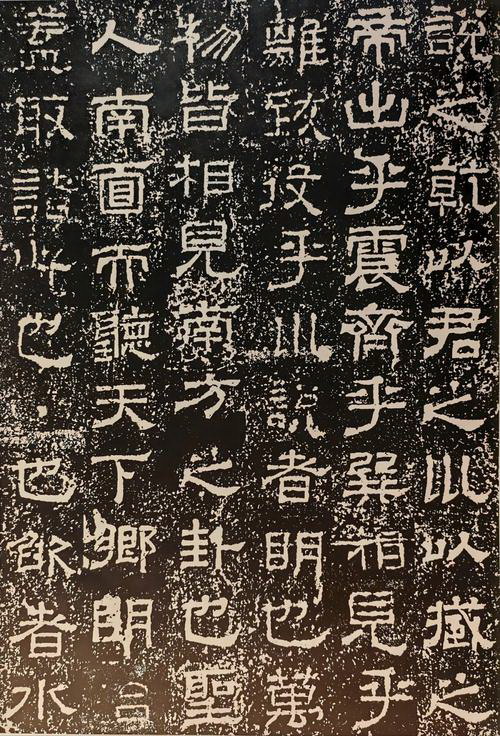 說之乾以君之川以臧之
帝出乎震齊乎巽相見乎
離致役乎川說者明也萬
物皆相見南方之卦也聖
人南面而聽天下鄉明
蓋取諸此也也欿者水